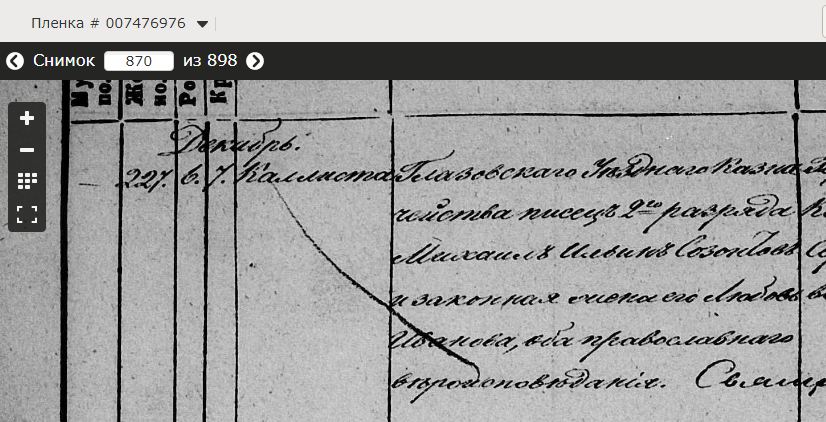 Пленка # 007476976
Снимок 870 из 898
Му
по
Же
по
Ро
Кр
Декабрь.
227. 6. 7. Каллиста
Глазовскаго Уѣзднаго Казна
чейства писецъ 2го разряда
Михаилъ Ильинъ Созонтовъ
и законная жена его Любовь
Иванова, оба православнаго
вѣроисповѣданія.